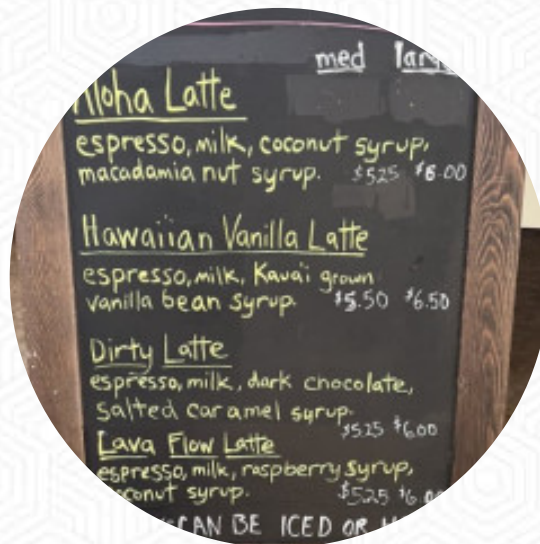 med
Aloha Latte
espresso, milk, coconut syrup,
macadamia nut syrup. $5.25 $6.00
Hawaiian Vanilla Latte
espresso, milk, Kaua'i grown
vanilla bean syrup. $5.50 $6.50
Dirty Latte
espresso, milk, dark chocolate,
salted caramel syrup.
$5.25 $6.00
Lava Flow Latte
espresso, milk, raspberry syrup,
coconut syrup. $5.25
CAN BE ICED OR